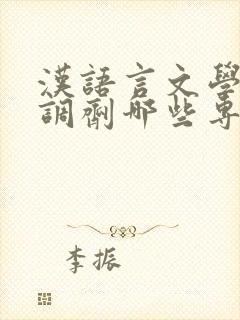 漢語言文學
調劑哪些專
李振